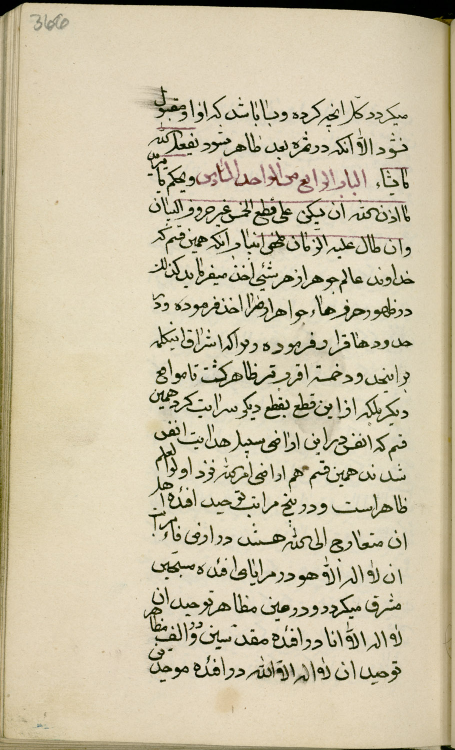 366
میکردد کل انچه کرده و بسا باشد که او او مقبول
نشود الا آنکه در ثمره بعد ظاهر شود یفعل الله
ما یشاء الباب الرابع من الواحد الثامن و یحکم ما یرید
ما اذن الله ان یسکن علی قطع الخمس غیر حروف البیان
وان طال علیه الزمان ظهر انباء و انکه همین قسم که
خداوند عالم جوهر از هر شیئی اخذ میفرماید کذلک
در ظهور حرفهاء جواهر ارض را اخذ فرموده و در
حدودها قرار فرموده و مرا که اشراق اینکلمه
در اینحدود خمسه اقرب تر ظاهر گشت تا مواقع
دیکر بلکه از این قطع بقطع دیکر سرایت کرد همین
قسم که انفس در این اراضی سبیل هدایت انفس
شدند همین قسم هم اراضی نزد اولو العلم
ظاهر است و در پنج مراتب توحید افئده اهل
ان متعارج الی الله هستند در ارض فاء مراتب
ان لا اله الا هو در مرایای افئده مسبحین
مشرق میکردد و در عین مظاهر توحید ان
لا اله الا انا در افئده مقدسین و در الف مظاهر
توحید ان لا اله الا الله در افئده موحدین